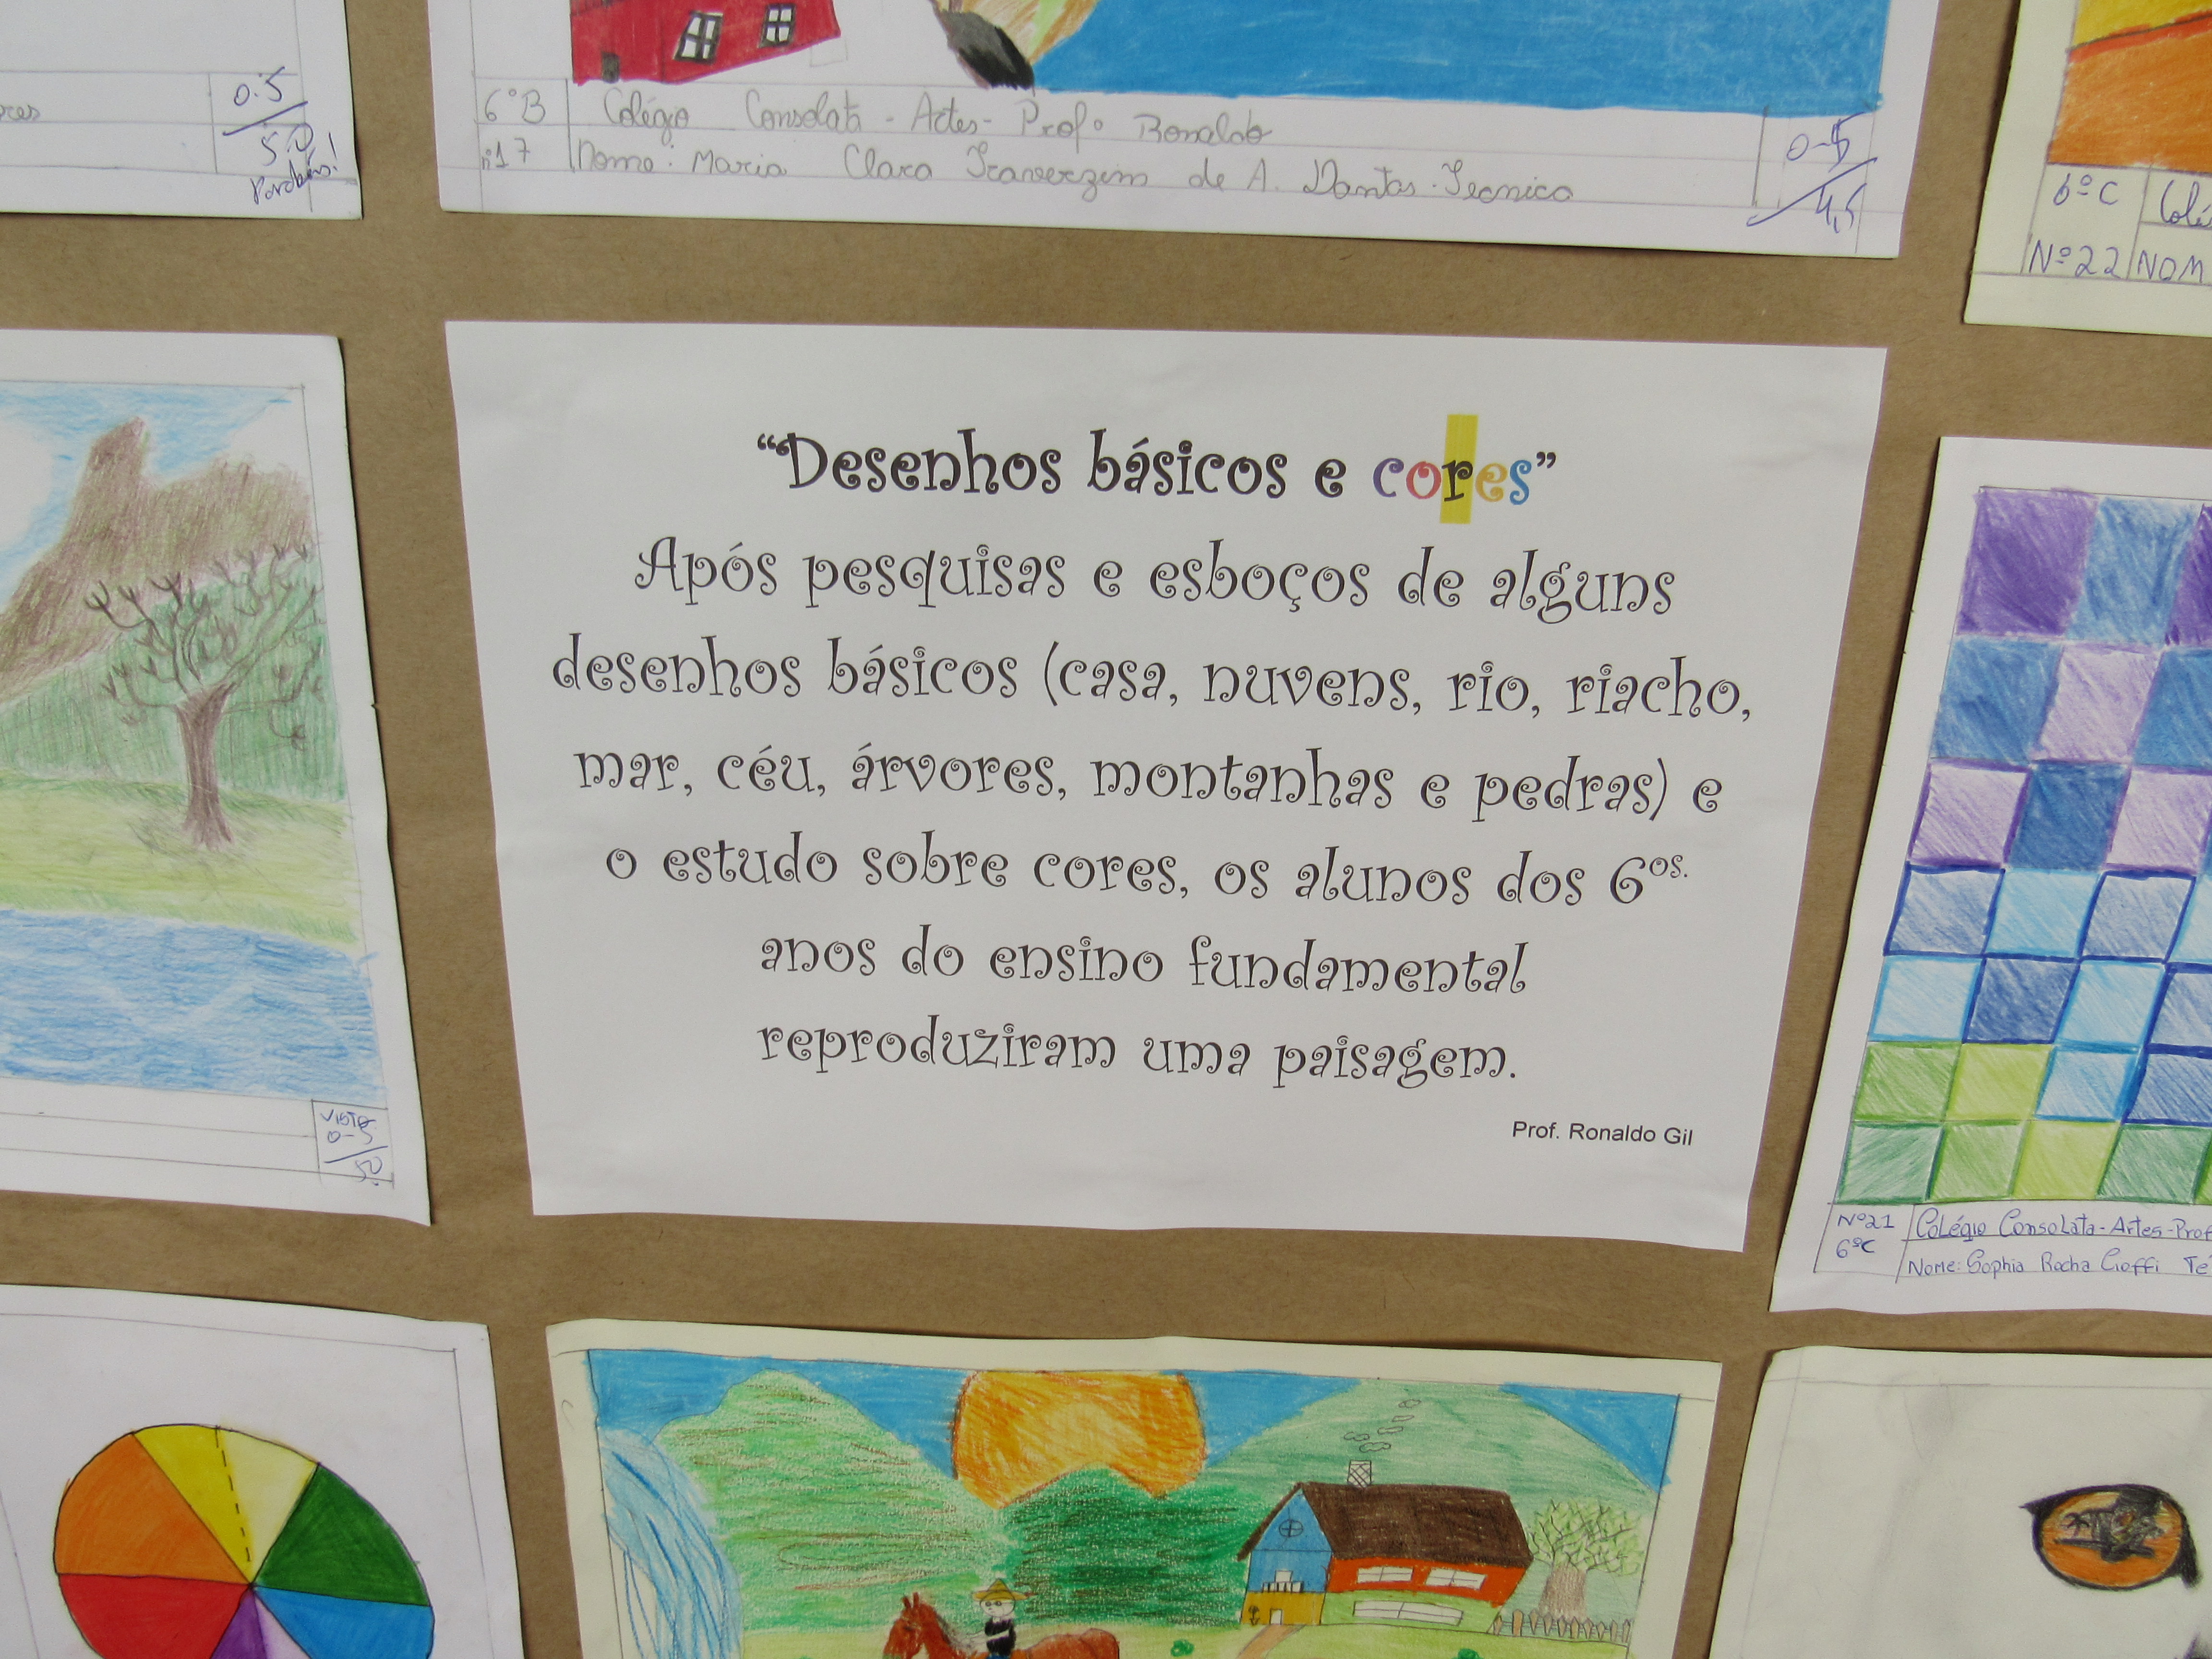 0.5
5.0
Parabéns!
6ºB Colégio Consolata - Artes - Profº Ronaldo
nº17 Nome: Maria Clara de A. Dantas - Tecnica
0-5
4,5
6ºC
Nº22 NOM
"Desenhos básicos e cores"
Após pesquisas e esboços de alguns
desenhos básicos (casa, nuvens, rio, riacho,
mar, céu, árvores, montanhas e pedras) e
o estudo sobre cores, os alunos dos 6os.
anos do ensino fundamental
reproduziram uma paisagem.
Prof. Ronaldo Gil
Visto
0-5
5.0
Nº21 Colégio Consolata - Artes - Prof
6ºC
Nome: Sophia Rocha Cioffi Té